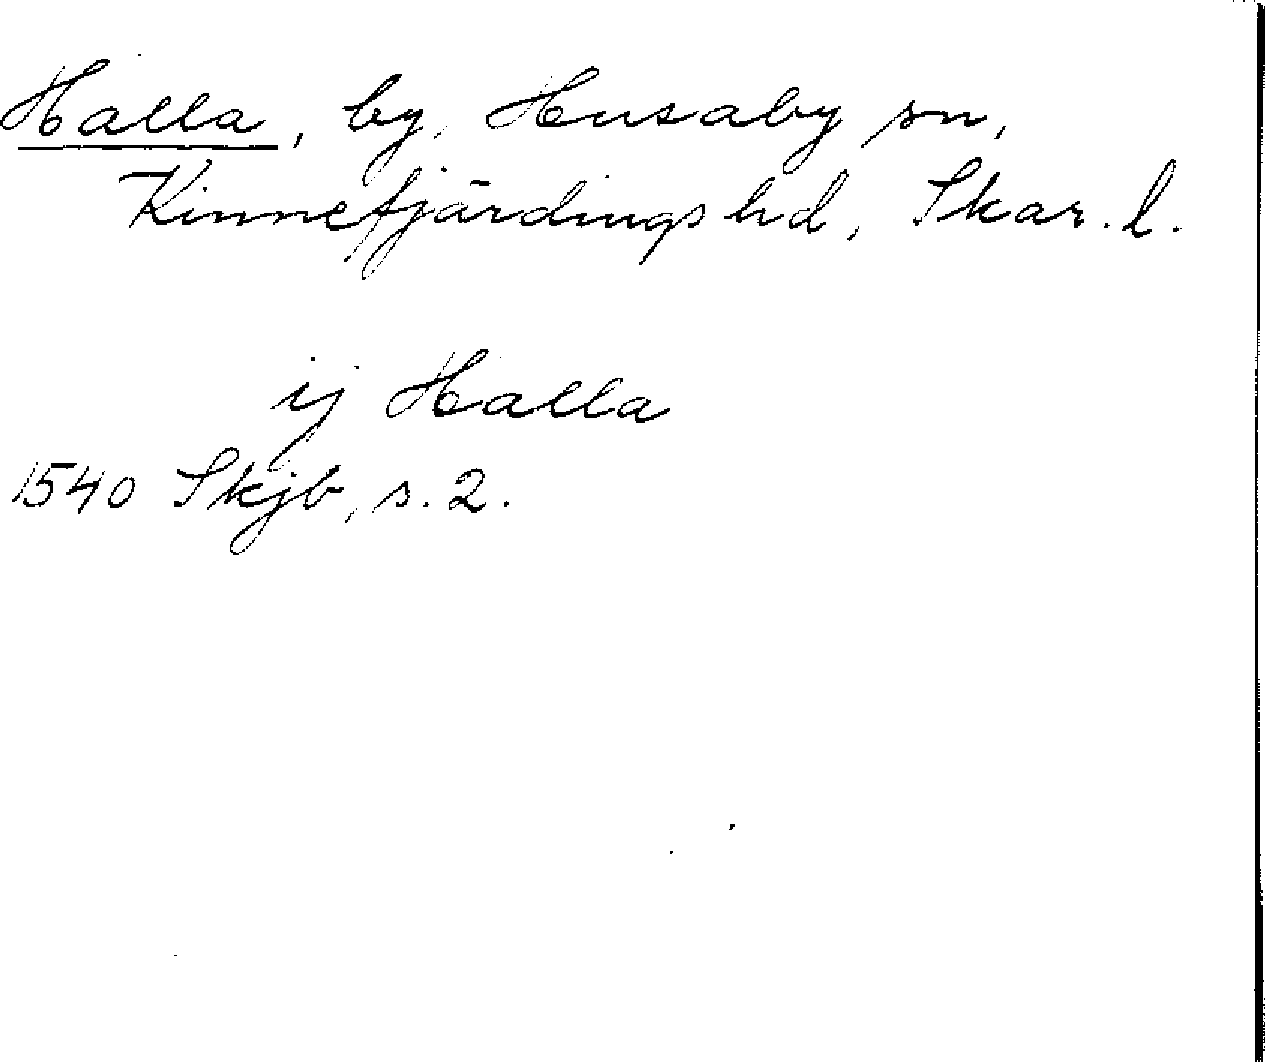 Halla, by, Husaby sn,
Kinnefjärdings hd, Skar. l.
ij Halla
1540 Skjb, s. 2.